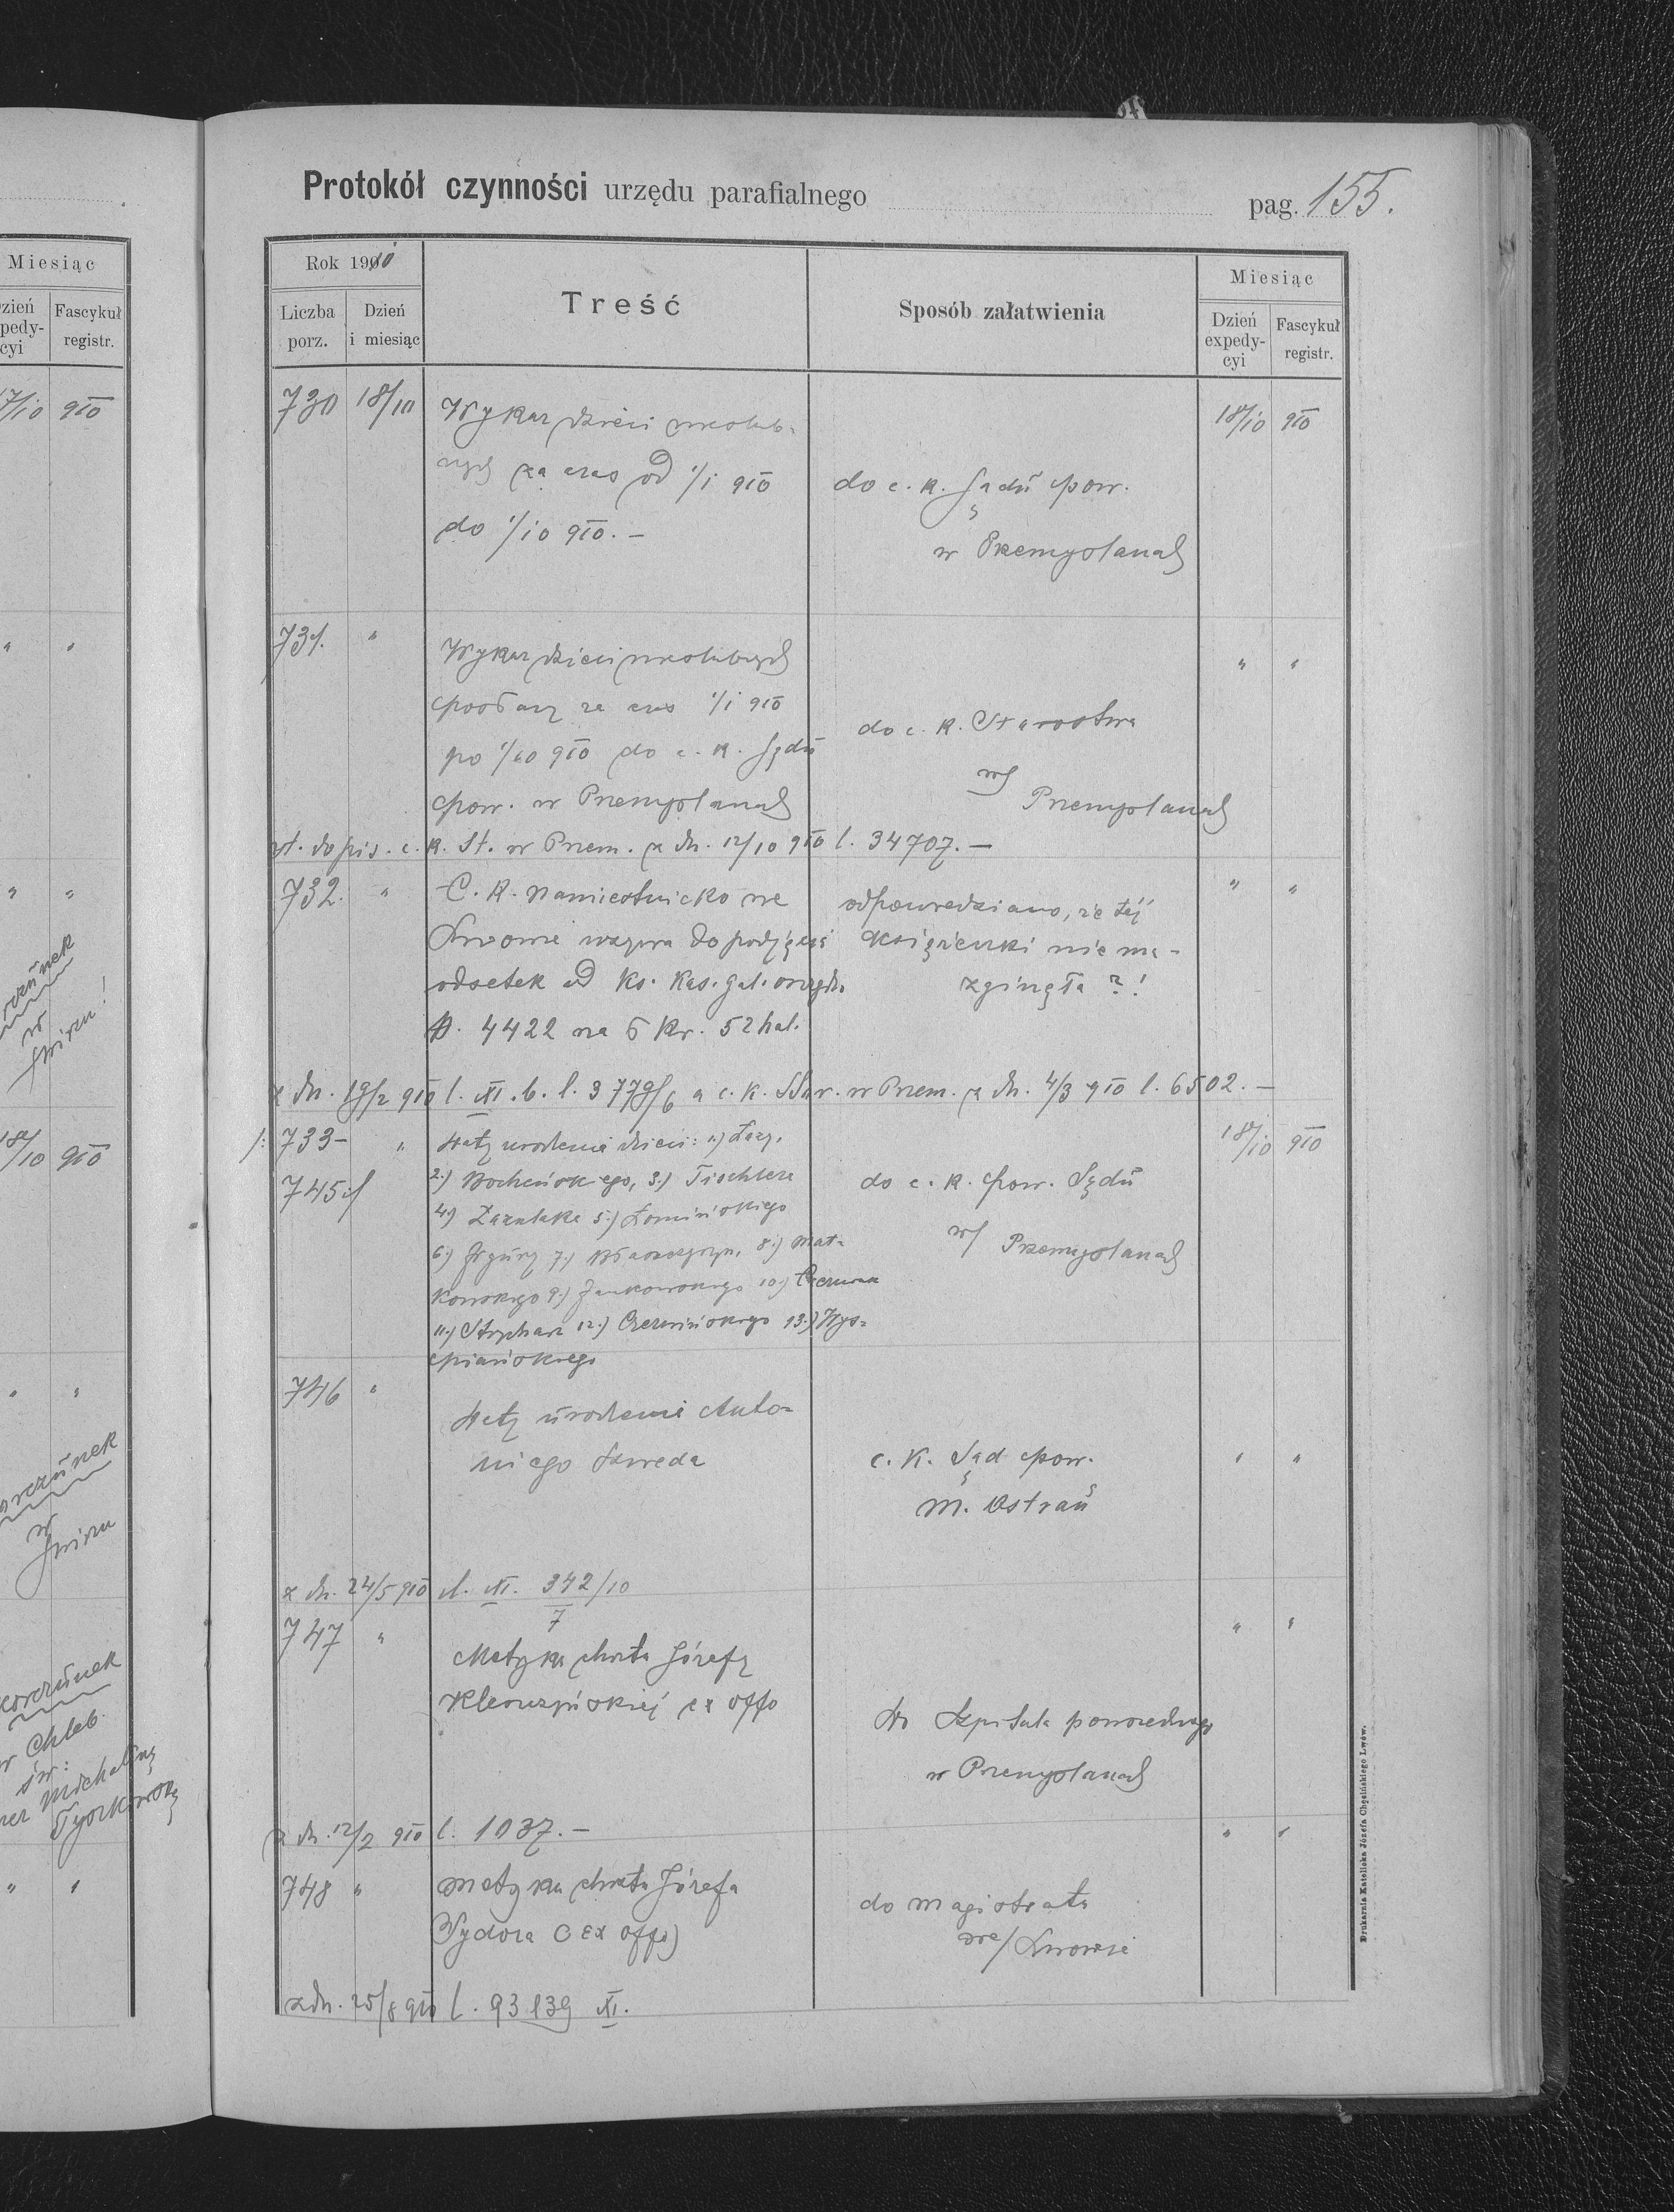 Protokół czynności urzędu parafialnego
pag. 155.
Rok 1910
Liczba porz.
Dzień i miesiąc
Treść
Sposób załatwienia
Miesiąc
Dzień expedycyi
Fascykuł registr.
730 18/10 Wykaz dzieci nieślub-
nych za czas od 1/1 910
do 1/10 910. –
do c. k. Sądu pow.
w Przemyślanach
18/10 910
731. " Wykaz dzieci nieślubnych
za czas 1/1 910
po 1/10 910 do c. k. Sądu
pow. w Przemyślanach
do c. k. Starostwa
w/ Przemyślanach
" "
do pis. c. k. St. w Przem. z dn. 12/10 910 l. 34707. –
732. " C. K. Namiestnicko we
Lwowie wzywa do podjęcia
odsetek od Ks. Kas. gal.
4422 na 6 Kr. 52 hal.
odpowiedziano, że tej
książeczki nie ma –
zginęła ?!
" "
z dn. 19/2 910 l. XI. b. l. 3779/6 a c. k. Star. w Przem. z dn. 4/3 910 l. 6502. –
/: 733 – " Daty urodzenia dzieci: 1.)
745 :/ 2.) Bocheńskiego, 3.) Tischlera
4.) Zazulaka 5.) Łomińskiego
6.) 7.) 8.) Mat-
kowskiego 9.) Jankowskiego 10.)
11.) 12.) Czerwińskiego 13.) Wys-
piańskiego
do c. k. pow. Sądu
w/ Przemyślanach
18/10 910
746 " Daty urodzenia Anto-
niego Szweda
c. K. Sąd pow.
M. Ostrau
" "
z dn. 24/5 910 l. XI. 342/10
7
747 " Metryka chrztu Józefy
ex offo
do Szpitala powszechnego
w Przemyślanach
" "
z dn. 12/2 910 l. 1037. –
748 " Metryka chrztu Józefa
Sydora (ex offo)
do magistratu
we/ Lwowie
" "
z dn. 25/8 910 l. 93139 XI.
Drukarnia Katolicka Józefa Chęcińskiego Lwów.
Miesiąc
Dzień expedycyi
Fascykuł registr.
17/10 910
" "
" "
w
18/10 910
" "
w
w Chleb.
św:
" "